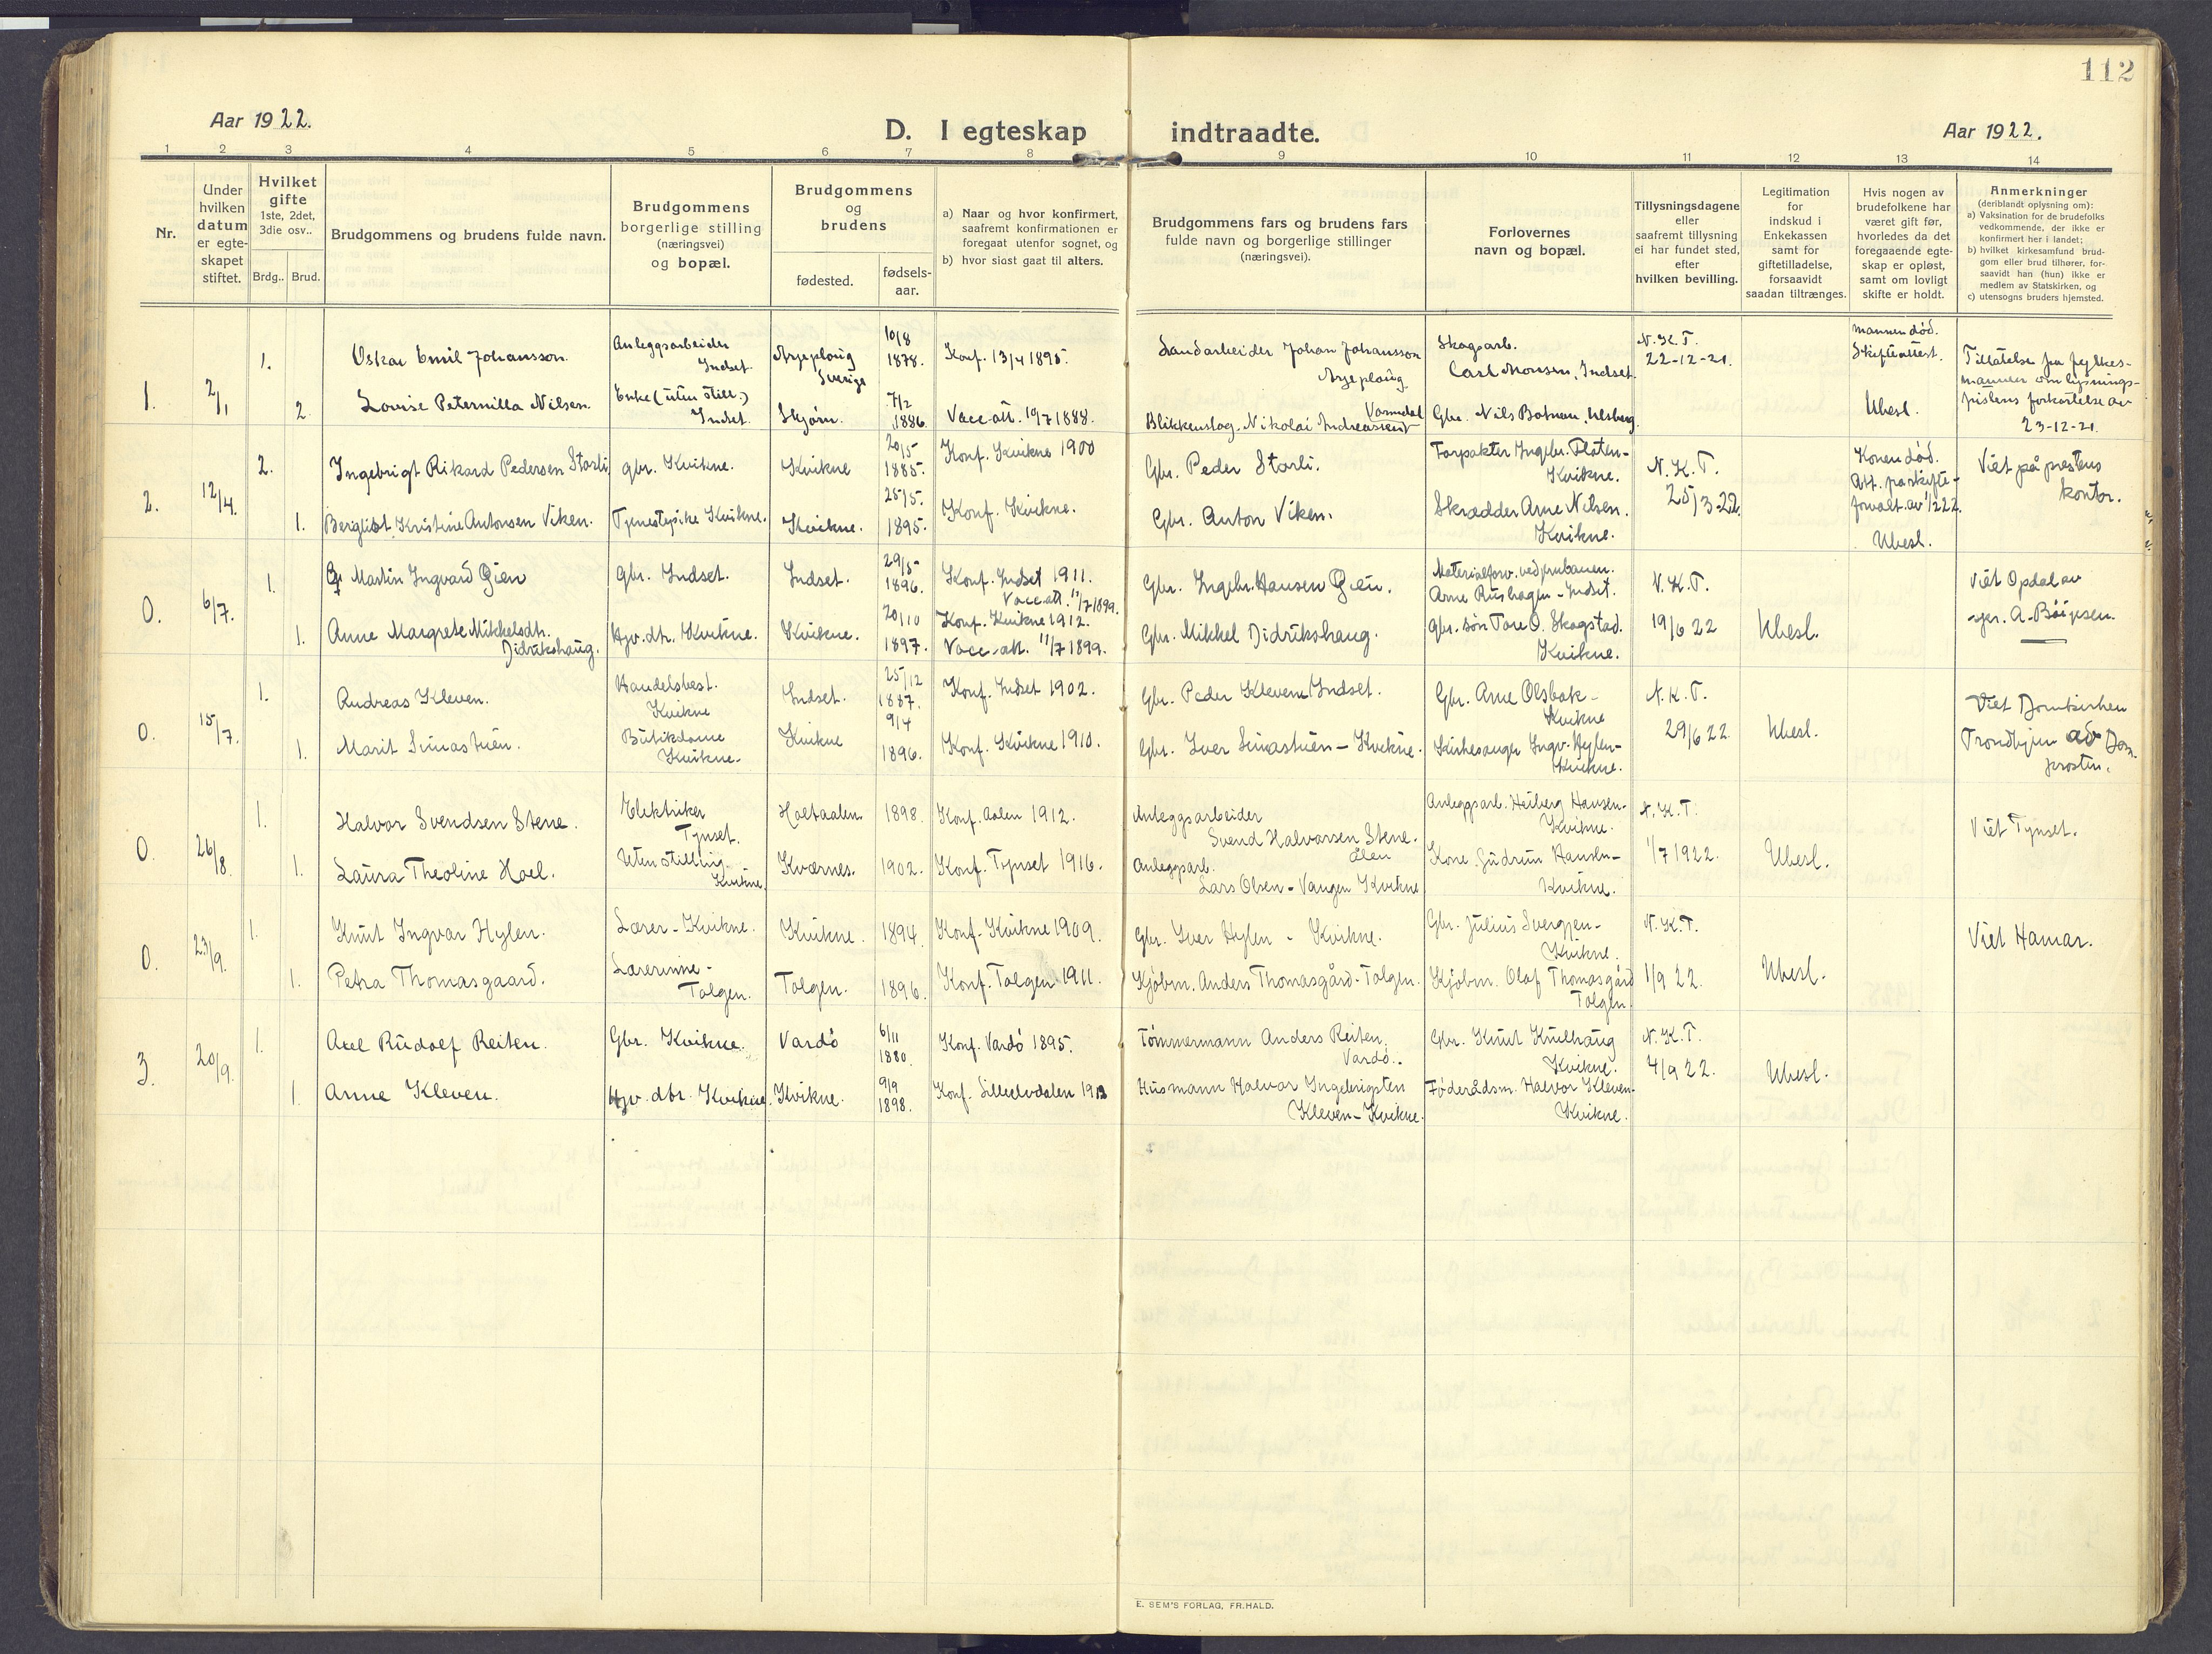 112
Aar 1922.
D. I egteskap indtraadte.
Aar 1922.
1 2 3 4 5 6 7 8 9 10 11 12 13 14
Nr.
Under hvilken datum er egteskapet stiftet.
Hvilket gifte
1ste, 2det, 3die osv..
Brdg.. Brud.
Brudgommens og brudens fulde navn.
Brudgommens borgerlige stilling (næringsvei) og bopæl.
Brudgommens og brudens
fødested.
fødsels-aar.
a) Naar og hvor konfirmert, saafremt konfirmationen er foregaat utenfor sognet, og
b) hvor sidst gaat til alters.
Brudgommens fars og brudens fars
fulde navn og borgerlige stillinger
(næringsvei).
Forlovernes
navn og bopæl.
Tillysningsdagene
eller
saafremt tillysning
ei har fundet sted,
efter
hvilken bevilling.
Legitimation
for
indskud i
Enkekassen
samt for
giftetilladelse,
forsaavidt
saadan tiltrænges.
Hvis nogen av
brudefolkene har
været gift før,
hvorledes da det
foregaaende egte-
skap er opløst,
samt om lovligt
skifte er holdt.
Anmerkninger
(deriblandt oplysning om):
a) Vaksination for de brudefolks
vedkommende, der ikke er
konfirmert her i landet;
b) hvilket kirkesamfund brud-
gom eller brud tilhører, for-
saavidt han (hun) ikke er
medlem av Statskirken, og
c) utensogns bruders hjemsted.
1. 2/1
1. Oskar Emil Johansson. Anleggsarbeider Indset. Arjeploug Sverige 10/8 1878. Konf. 13/4 1895. Landarbeider Johan Johansson Arjeploug. Skogsarb. Carl Monsen, Indset. N.K.T. 22-12-21. Mannen død. Skifteattest. Tillatelse fra fylkes-
mannen om lysnings-
fristens forkortelse av
23-12-21.
2. Lovise Peternilla Nilsen. Enke (uten still.) Indset. Skjørn. 7/2 1886. Vacc.att. 19/7 1888. Blikkenslag. Nikolai Andreassen Gbr. Nils Botnan, Ulsberg. Ubesl.
2. 12/4.
2. Ingebrigt Rikard Pedersen Storli, gbr. Kvikne. Kvikne 20/5 1885. Konf. Kvikne 1900 Gbr. Peder Storli. Forpakter Ingebr. Floten- Kvikne. N.K.T. 25/3-22. Konen død. Att. fra skifte-
forvalt. av 1/2 22. Viet på prestens
kontor.
1. Bergliot Kristine Antonsen Viken. Tjenestepike Kvikne. Kvikne. 25/5. 1895. Konf. Kvikne. Gbr. Anton Viken. Skrædder Arne Nilsen. Kvikne. Ubesl.
0. 6/7.
1. Martin Ingvard Gjen Gbr. Indset. Indset. 29/5 1896. Konf. Indset 1911. Vacc.att. 11/7 1899. Gbr. Ingebr. Hansen Gjen. Materialforv. ved jernbanen. Arne Rushagen - Indset. N.K.T. Viet Opdal av
1. Anne Margrete Mikkelsdtr. Didrikshaug. Hjv. dtr. Kvikne. Kvikne. 20/10 1897. Konf. Kvikne 1912. Vacc-att. 11/7 1899. Gbr. Mikkel Didrikshaug. Gbr. søn Tore O. Skogstad. Kvikne. 19/6 22 Ubesl.
0. 15/7.
1. Andreas Kleven. Handelsbest. Kvikne Indset. 25/12 1887. Konf. Indset 1902. Gbr. Peder Kleven Indset. Gbr. Arne Olsbak- Kvikne N.K.T. Viet Domkirken
Trondhjem av Dom-
prosten.
1. Marit Simastuen. Butikdame Kvikne. Kvikne 9/4 1896. Konf. Kvikne 1910. Gbr. Iver Simastuen - Kvikne. Kirkesanger Ingv. Hylen- Kvikne. 29/6 22. Ubesl.
0. 26/8.
1. Halvor Svendsen Stene. Elektriker Tynset. Holtaalen 1898. Konf. Aalen 1912. Anleggsarbeider Svend Halvorsen Stene. Ålen Anleggsarb. Heiberg Hansen- Kvikne. N.K.T. Viet Tynset.
1. Laura Theoline Hoel. Uten stilling. Kvikne. Kværnes. 1902. Konf. Tynset 1916. Anleggsarb. Lars Olsen - Vangen Kvikne Kone Gudrun Hansen- Kvikne. 1/7 1922. Ubesl.
0. 23/9.
1. Knut Ingvar Hylen. Lærer - Kvikne. Kvikne. 1894. Konf. Kvikne 1909. Gbr. Iver Hylen - Kvikne. Gbr. Julius Svergjen- Kvikne. N.K.T. Viet Hamar.
1. Petra Thomasgaard. Lærerinne- Tolgen. Tolgen. 1896. Konf. Tolgen 1911. Kjøbm. Anders Thomasgård - Tolgen. Kjøbm. Olaf Thomasgård Tolgen. 1/9 22. Ubesl.
3. 20/9.
1. Axel Rudolf Reiten. Gbr. Kvikne. Vardø 6/11 1880. Konf. Vardø 1895. Tømmermann Anders Reiten, Vardø. Gbr. Knut Knulhaug Kvikne. N.K.T. 4/9 22. Ubesl.
1. Anne Kleven. Hjv. dtr. Kvikne. Kvikne. 9/9 1898. Konf. Lilleelvdalen 1913 Husmann Halvor Ingebrigtsen Kleven - Kvikne. Føderådsm. Halvor Kleven- Kvikne.
E. SEM'S FORLAG, FR.HALD.